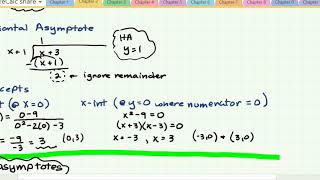 reCalc share
Chapter 1 Chapter 2 Chapter 3 Chapter 4 Chapter 5 Chapter 6 Chapter 7
izontal Asymptote
1
x+1 x+3
-(x+1)
2 ← ignore remainder
HA
y=1
cepts
t (@ x=0) x-int (@ y=0 where numerator = 0)
) = 0-9 / 0²-2(0)-3 x²-9=0
(x+3)(x-3)=0
= -9/-3 = 3 (0,3) x=-3, x=3 (-3,0) + (3,0)
asymptotes